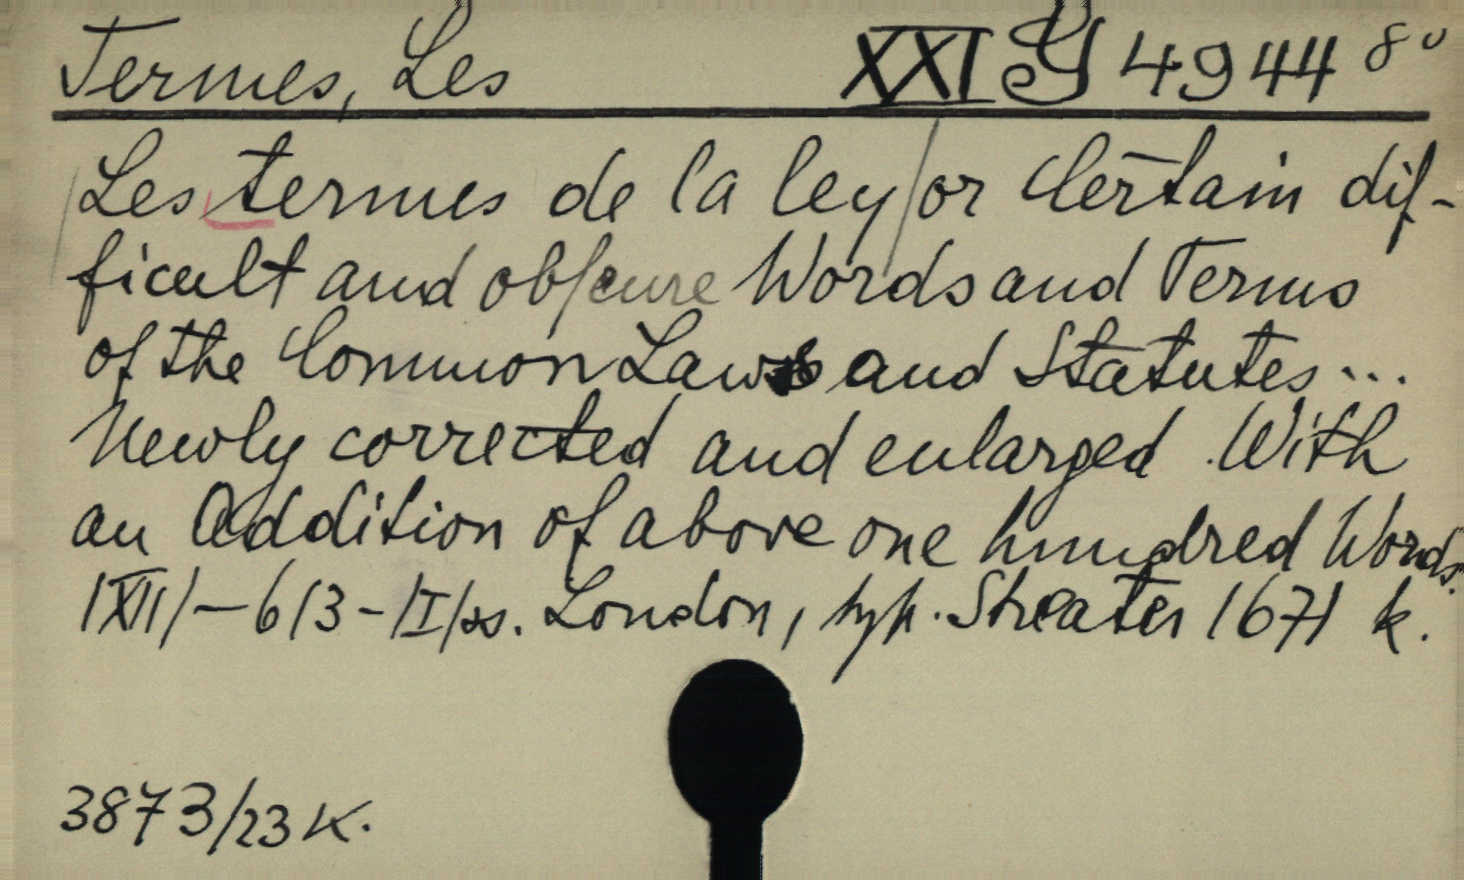 Termes, Les XXI Y 4944 8°
Les termes de la ley/or Certain dif-
ficult and obſcure Words and Terms
of the Common Laws and Statutes...
Newly corrected and enlarged. With
an Addition of above one hundred Words.
/XII/—613-/I/ss. London, typ. Streater 1671 k.
3873/23 K.